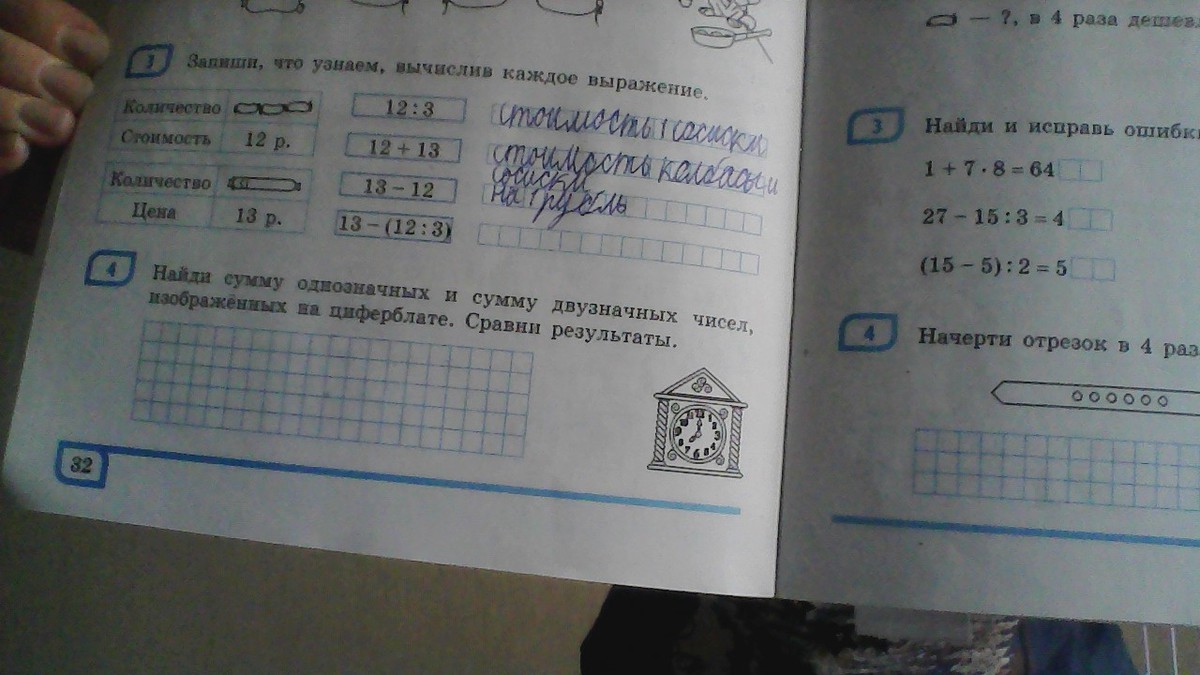 3 Запиши, что узнаем, вычислив каждое выражение.
Количество
Стоимость 12 р.
Количество
Цена 13 р.
12 : 3 стоимость 1 сосиски
12 + 13 стоимость колбасы и
сосиски
13 − 12 на 1 рубль
13 − (12 : 3)
4 Найди сумму однозначных и сумму двузначных чисел,
изображённых на циферблате. Сравни результаты.
32
— ?, в 4 раза дешевл
3 Найди и исправь ошибк
1 + 7 · 8 = 64
27 − 15 : 3 = 4
(15 − 5) : 2 = 5
4 Начерти отрезок в 4 раз